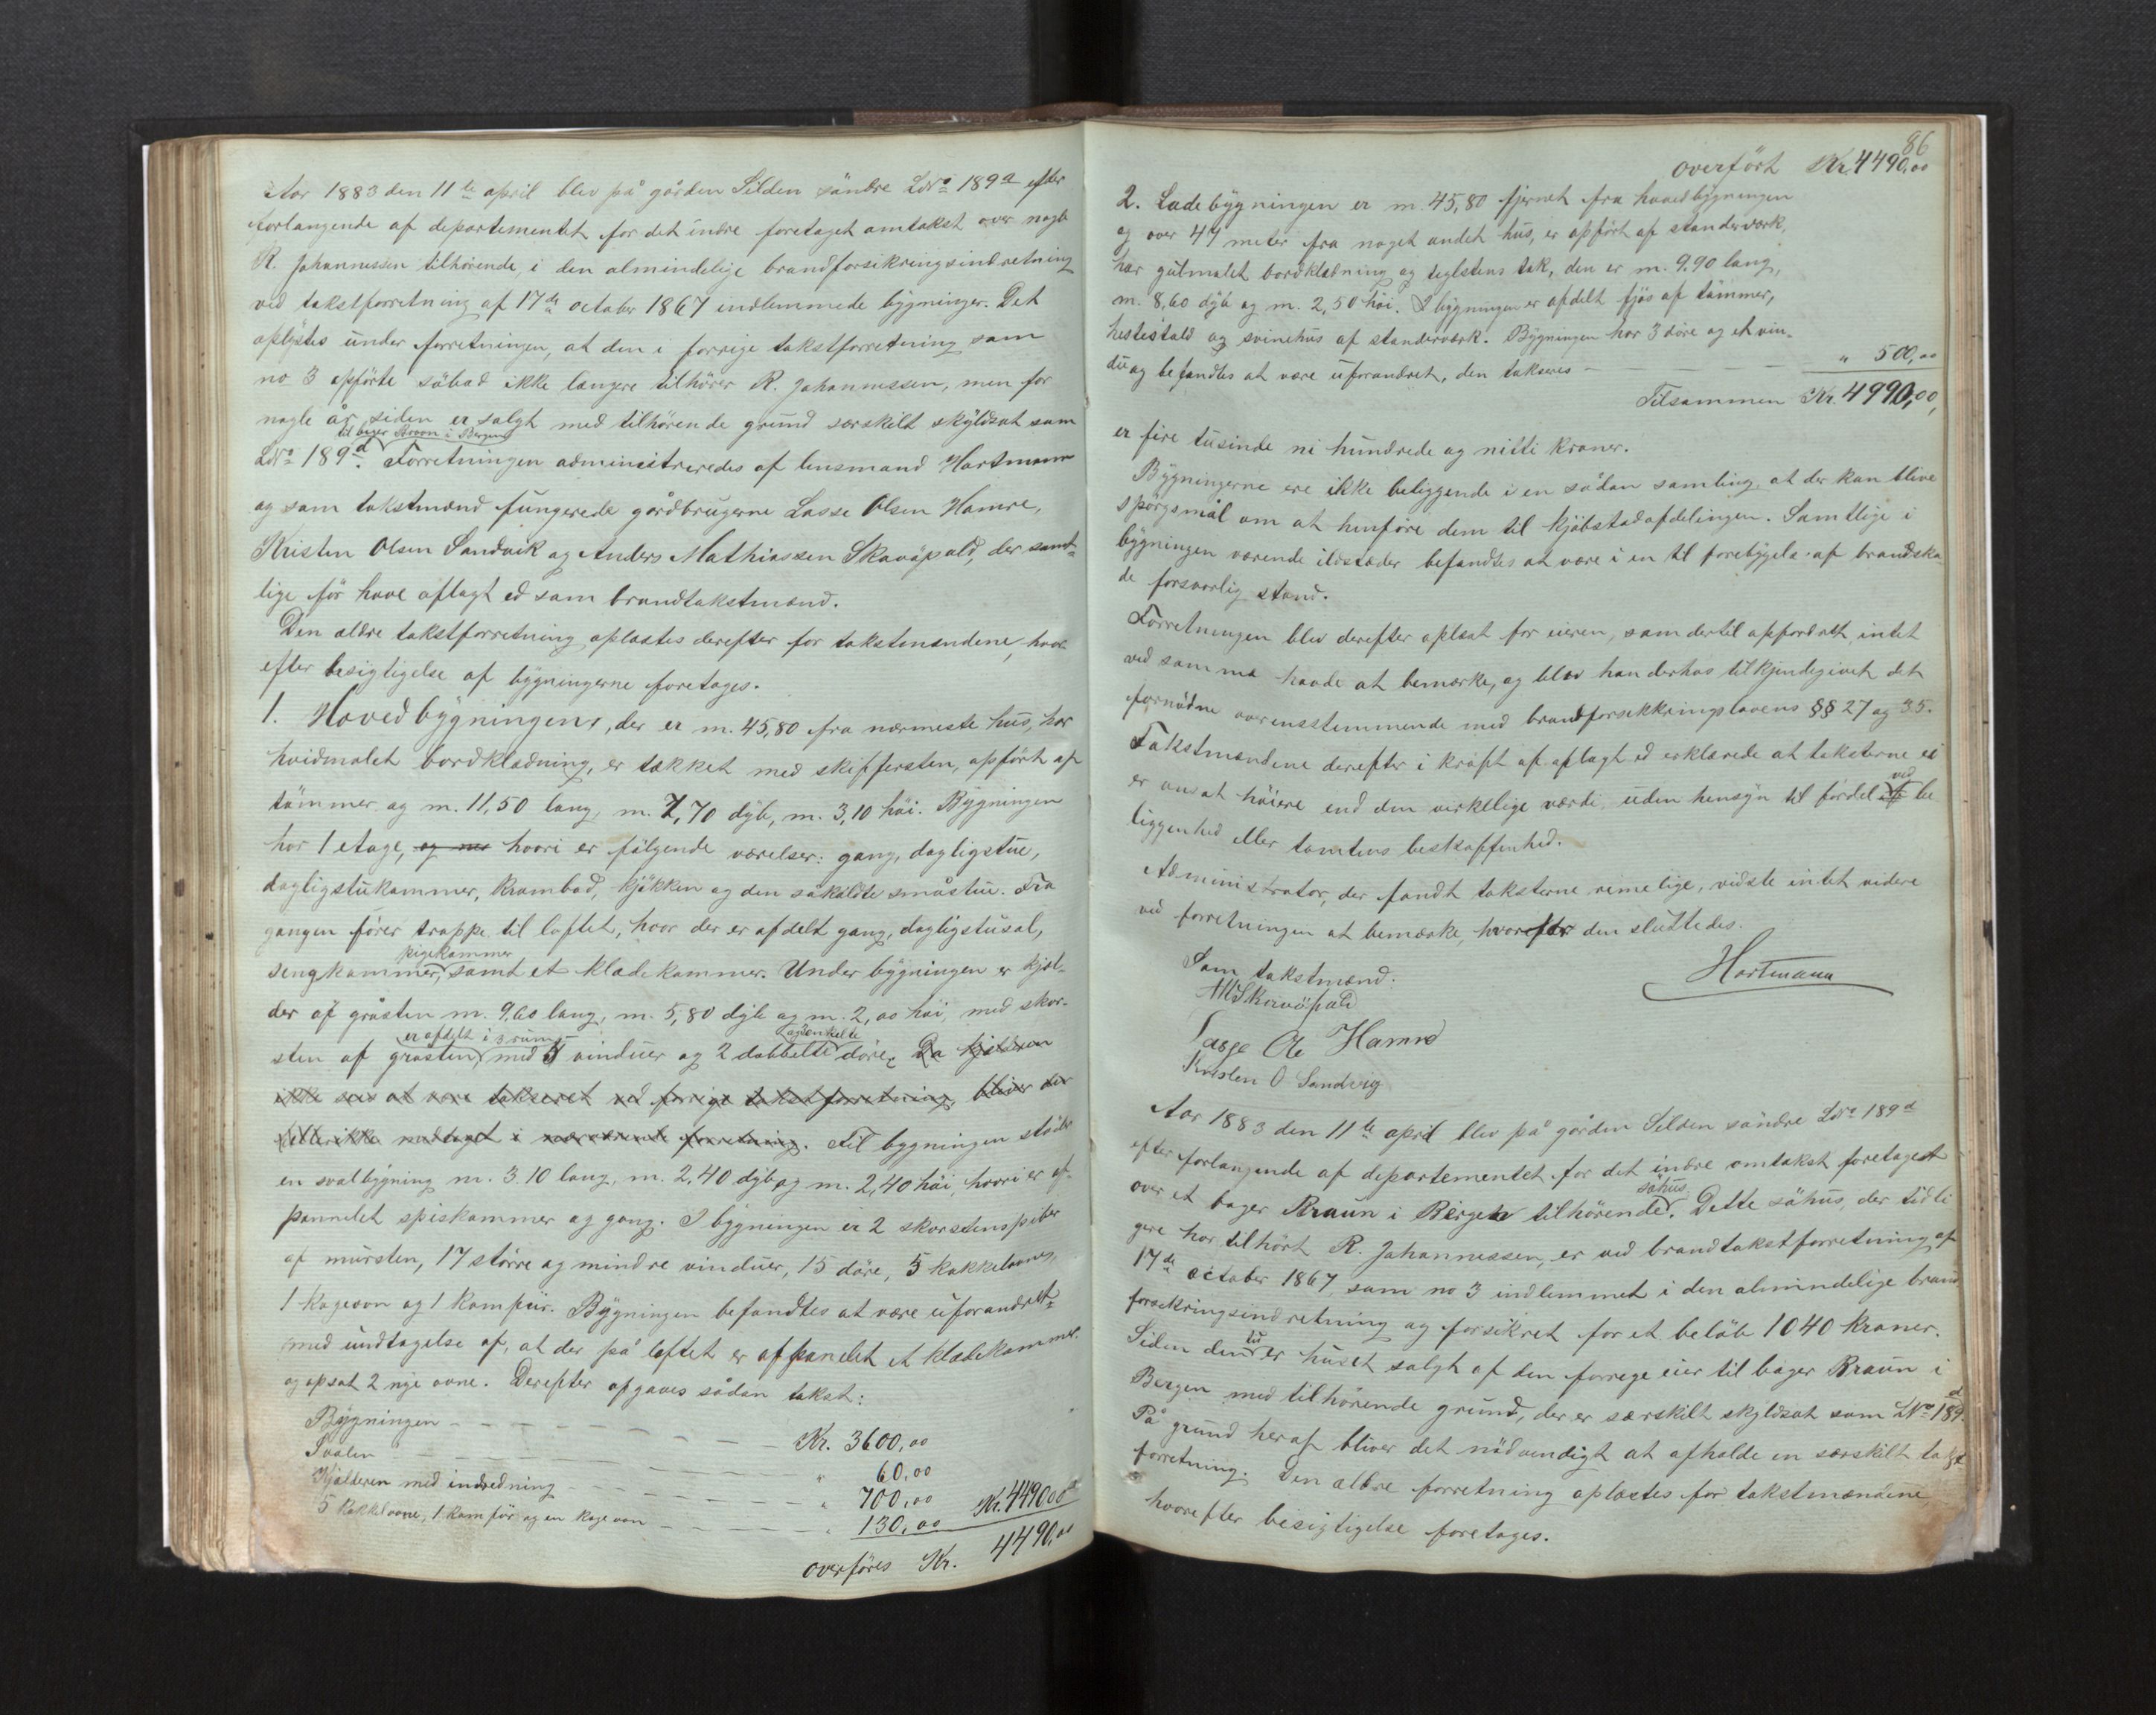 Aar 1883 den 11te april blev på gården Silden söndre LNo 189a efter
forlangende af departementet for det indre foretaget omtakst over nogle
R. Johannessen tilhörende, i den almindelige brandforsikringsindretning
ved takstforretning af 17de october 1867 indlemmede bygninger. Det
oplystes under forretningen, at den i forrige takstforretning som
no 3 opförte söbod ikke længere tilhörer R. Johannessen, men for
nogle år siden er solgt med tilhörende grund særskilt skyldsat som
til bager Braun i Bergen
LNo 189d. Forretningen administreredes af lensmand Hartmann
og som takstmænd fungerede gårdbrugerne Lasse Olsen Hamre,
Kristen Olsen Sandvik og Anders Mathiassen Skavöpold, der samt-
lige för have aflagt ed som brandtakstmænd.
Den ældre takstforretning oplæstes derefter for takstmændene, hvor-
efter besigtigelse af bygningerne foretages.
1. Hovedbygningen, der er m. 45,80 fra nærmeste hus, har
hvidmalet bordklædning, er tækket med skiffersten, opfört af
tömmer og m. 11,50 lang, m. 7,70 dyb, m. 3,10 höi. Bygningen
har 1 etage, og hvori er fölgende værelser: gang, dagligstue,
dagligstukammer, krambod, kjökken og den såkaldte småstue. Fra
gangen förer trappe til loftet, hvor der er afdelt gang, dagligstusal,
pigekammer
sengkammer, samt et klædekammer. Under bygningen er kjæl-
der af gråsten m. 9,60 lang, m. 5,80 dyb og m. 2,00 höi, med skor-
er afdelt i 3 rum og enkelte
sten af gråsten, med 4 vinduer og 2 dobbelte döre. Da kjælderen
ikke sees at være takseret ved forrige takstforretning, bliver der
heller ikke medtaget i nærværende forretning. Til bygningen stöder
en svalbygning m. 3.10 lang, m. 2,40 dyb og m. 2,40 höi hvori er af-
pannelet spiskammer og gang. I bygningen er 2 skorstenspiber
af mursten, 17 större og mindre vinduer, 15 döre, 5 kakkelovne,
1 kageovn og 1 komfür. Bygningen befandtes at være uforandret
med undtagelse af, at der på loftet er afpanelet et klædekammer
og opsat 2 nye ovne. Derefter afgaves sådan takst:
Bygningen - - - - - - Kr. 3600,00
Svalen - - - - - - " 60,00
Kjælderen med indredning - - - - - - " 700,00
5 kakkelovne, 1 komfür og en kageovn - - - - - " 130,00 Kr. 4490,00
overföres Kr. 4490,00
86
overfört Kr. 4490,00
2. Ladebygningen er m. 45,80 fjernet fra hovedbygningen
og over 44 meter fra noget andet hus, er opfört af standerværk,
har gulmalet bordklædning og teglstens tak, den er m. 9.90 lang,
m. 8,60 dyb og m. 2,50 höi. I bygningen er afdelt fjös af tömmer,
hestestald og svinehus af standerværk. Bygningen har 3 döre og et vin-
du og befandtes at være uforandret, den takseres - - - " 500,00
Tilsammen Kr. 4990,00,
er fire tusinde ni hundrede og nitti kroner.
Bygningerne ere ikke beliggende i en sådan samling, at der kan blive
spörgsmål om at henföre dem til kjöbstadafdelingen. Samtlige i
bygningen værende ildstæder befandtes at være i en til forebygelse af brandska-
de forsvarlig stand.
Forretningen blev derefter oplæst for eieren, som dertil opfordret intet
ved samme havde at bemærke, og blev han derhos tilkjendegivet det
fornödne overensstemmende med brandforsikkringslovens §§ 27 og 35.
Takstmændene derefter i kraft af aflagt ed erklærede at taksterne ei
ved
er ansat höiere end den virkelige værdi, uden hensyn til fordel af be-
liggenhed eller tomtens beskaffenhed.
Administrator, der fandt taksterne rimelige, vidste intet videre
ved forretningen at bemærke, hvorefter den sluttedes.
Hartmann
Som takstmænd:
AMSkavöpold
Lasse Ol Hamre
Kristen O Sandvig
Aar 1883 den 11te april blev på gården Silden söndre LNo 189d
efter forlangende af departementet for det indre omtakst foretaget
söhus
over et bager Braun i Bergen tilhörende. Dette söhus, der tidli-
gere har tilhört R. Johannessen, er ved brandtakstforretning af
17de october 1867 som no 3 indlemmet i den almindelige brand-
forsikringsindretning og forsikret for et belöb 1040 kroner.
tid
Siden den er huset solgt af den forrige eier til bager Braun i
Bergen med tilhörende grund, der er særskilt skyldsat som LNo 189d.
På grund heraf bliver det nödvendigt at afholde en særskilt takst-
forretning. Den ældre forretning oplæstes for takstmændene
hvorefter besigtigelse foretages.